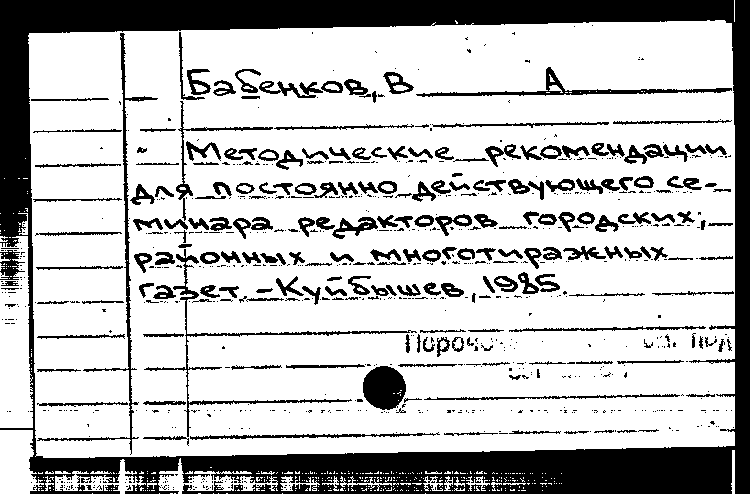 Бабенков, В А
Методические рекомендации
для постоянно действующего се-
минара редакторов городских,
районных и многотиражных
газет. – Куйбышев, 1985.